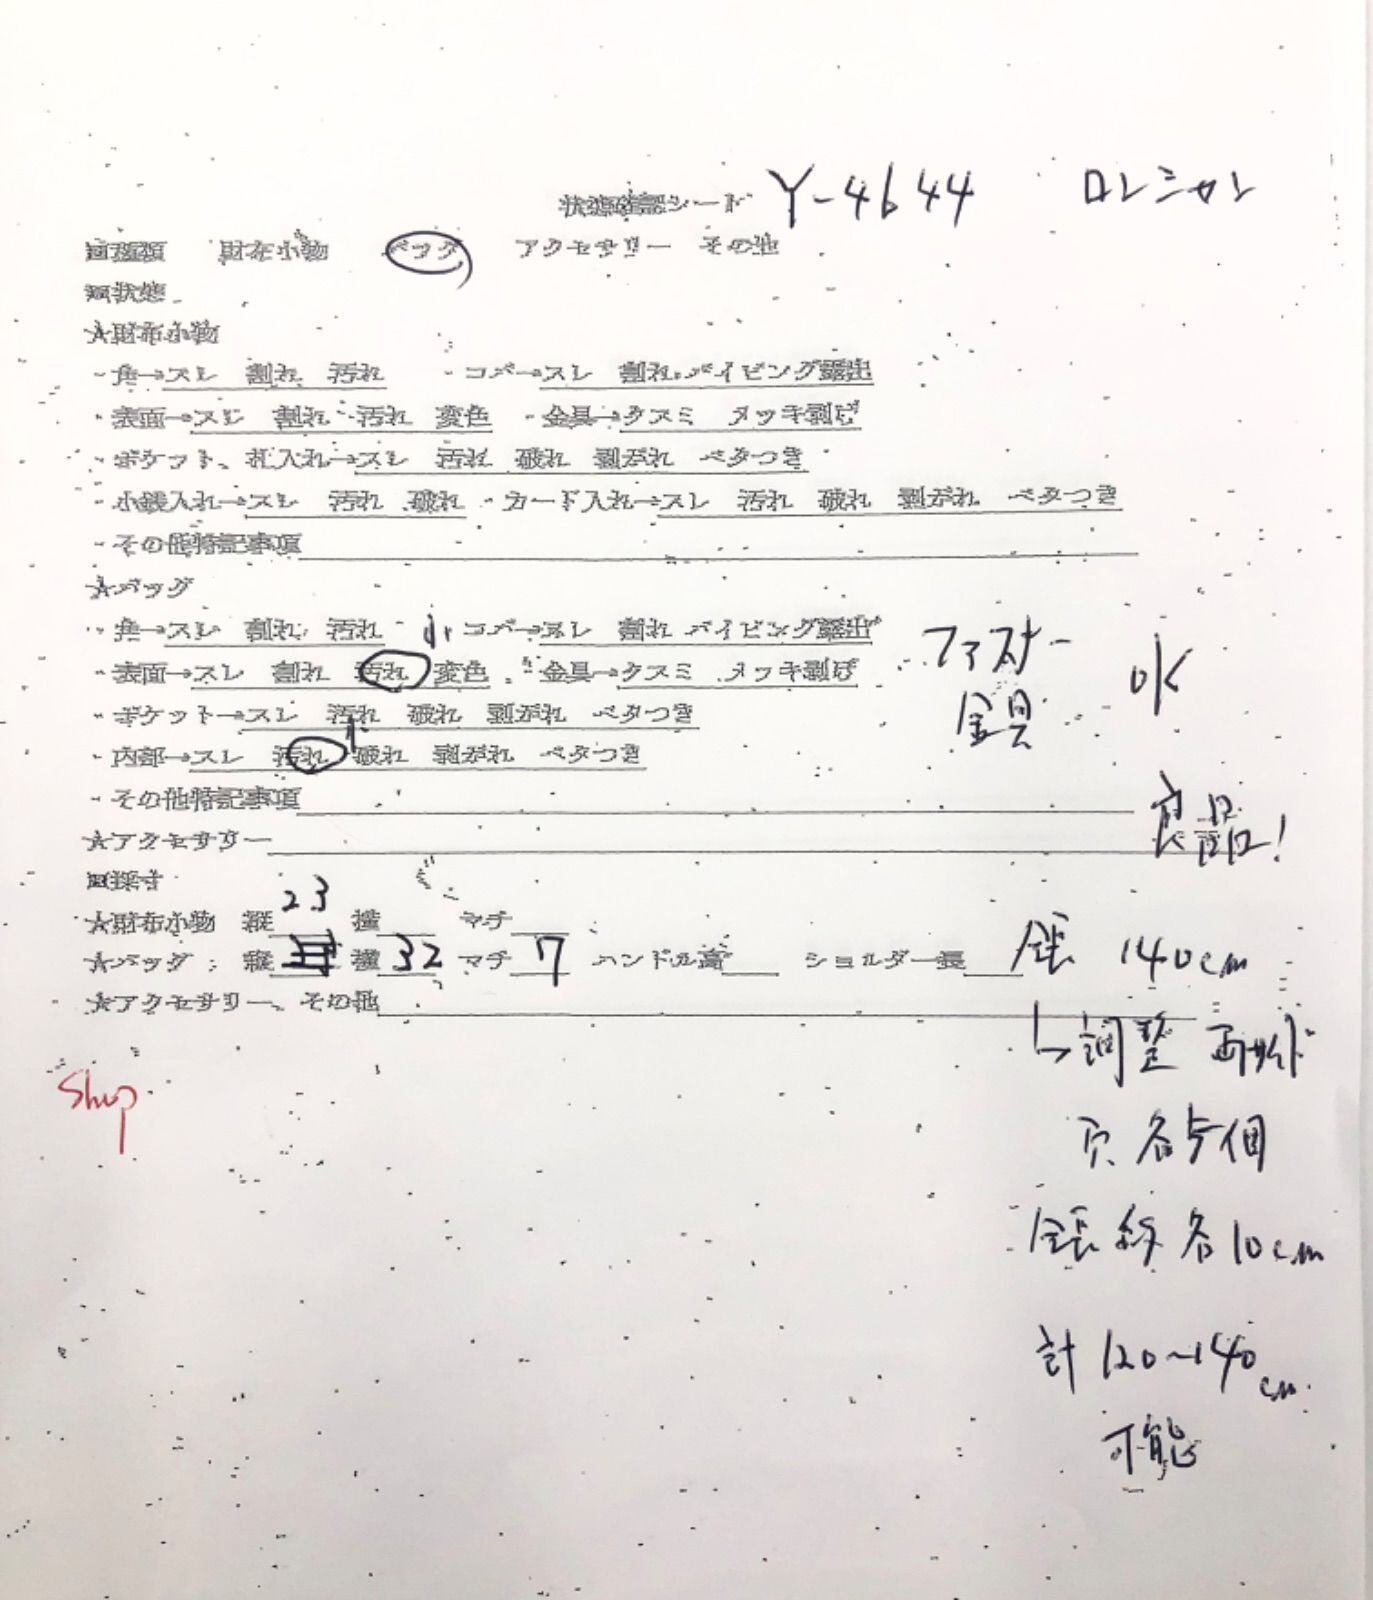 状態確認シート Y-4644 ロンシャン
■種類 財布小物 バッグ アクセサリー その他
■状態
★財布小物
・角→スレ 割れ 汚れ ・コバ→スレ 割れ パイピング露出
・表面→スレ 割れ 汚れ 変色 ・金具→クスミ メッキ剥げ
・ポケット、札入れ→スレ 汚れ 破れ 剥がれ ベタつき
・小銭入れ→スレ 汚れ 破れ ・カード入れ→スレ 汚れ 破れ 剥がれ ベタつき
・その他特記事項
★バッグ
・角→スレ 割れ 汚れ 小 ・コバ→スレ 割れ パイピング露出
・表面→スレ 割れ 汚れ 変色 ・金具→クスミ メッキ剥げ
ファスナー
金具
OK
・ポケット→スレ 汚れ 破れ 剥がれ ベタつき
・内部→スレ 汚れ 小 破れ 剥がれ ベタつき
・その他特記事項
良品!
★アクセサリー
■採寸
★財布小物 縦 横 マチ
23
★バッグ:縦 横 32 マチ 7 ハンドル高 ショルダー長 全長 140cm
★アクセサリー、その他
↳調整 両サイド
穴 各5個
全長 約 各10cm
計 120~140cm
可能
Shop